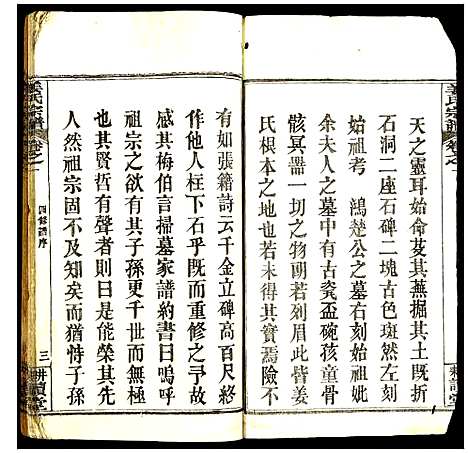 姜氏宗譜
卷之一
天之靈耳始命芟其蕪掘其土既折
石洞二座石碑二塊古色斑然左刻
始祖考　鴻楚公之墓右刻始祖
余夫人之墓中有古瓷盃碗孩童骨
骸冥噐一切之物朗若列眉此皆姜
氏根本之地也若未得其實焉險不
耕讀堂
有如張籍詩云千金立碑高百尺終
作他人柱下石乎既而重修之予故
感其梅伯言掃墓家譜約書曰嗚呼
祖宗之欲有其子孫更千世而無極
也其賢哲有聲者則是能榮其先
人然祖宗固不及知矣而猶恃子孫
姜氏宗譜
卷之一
四修譜序
三
耕讀堂